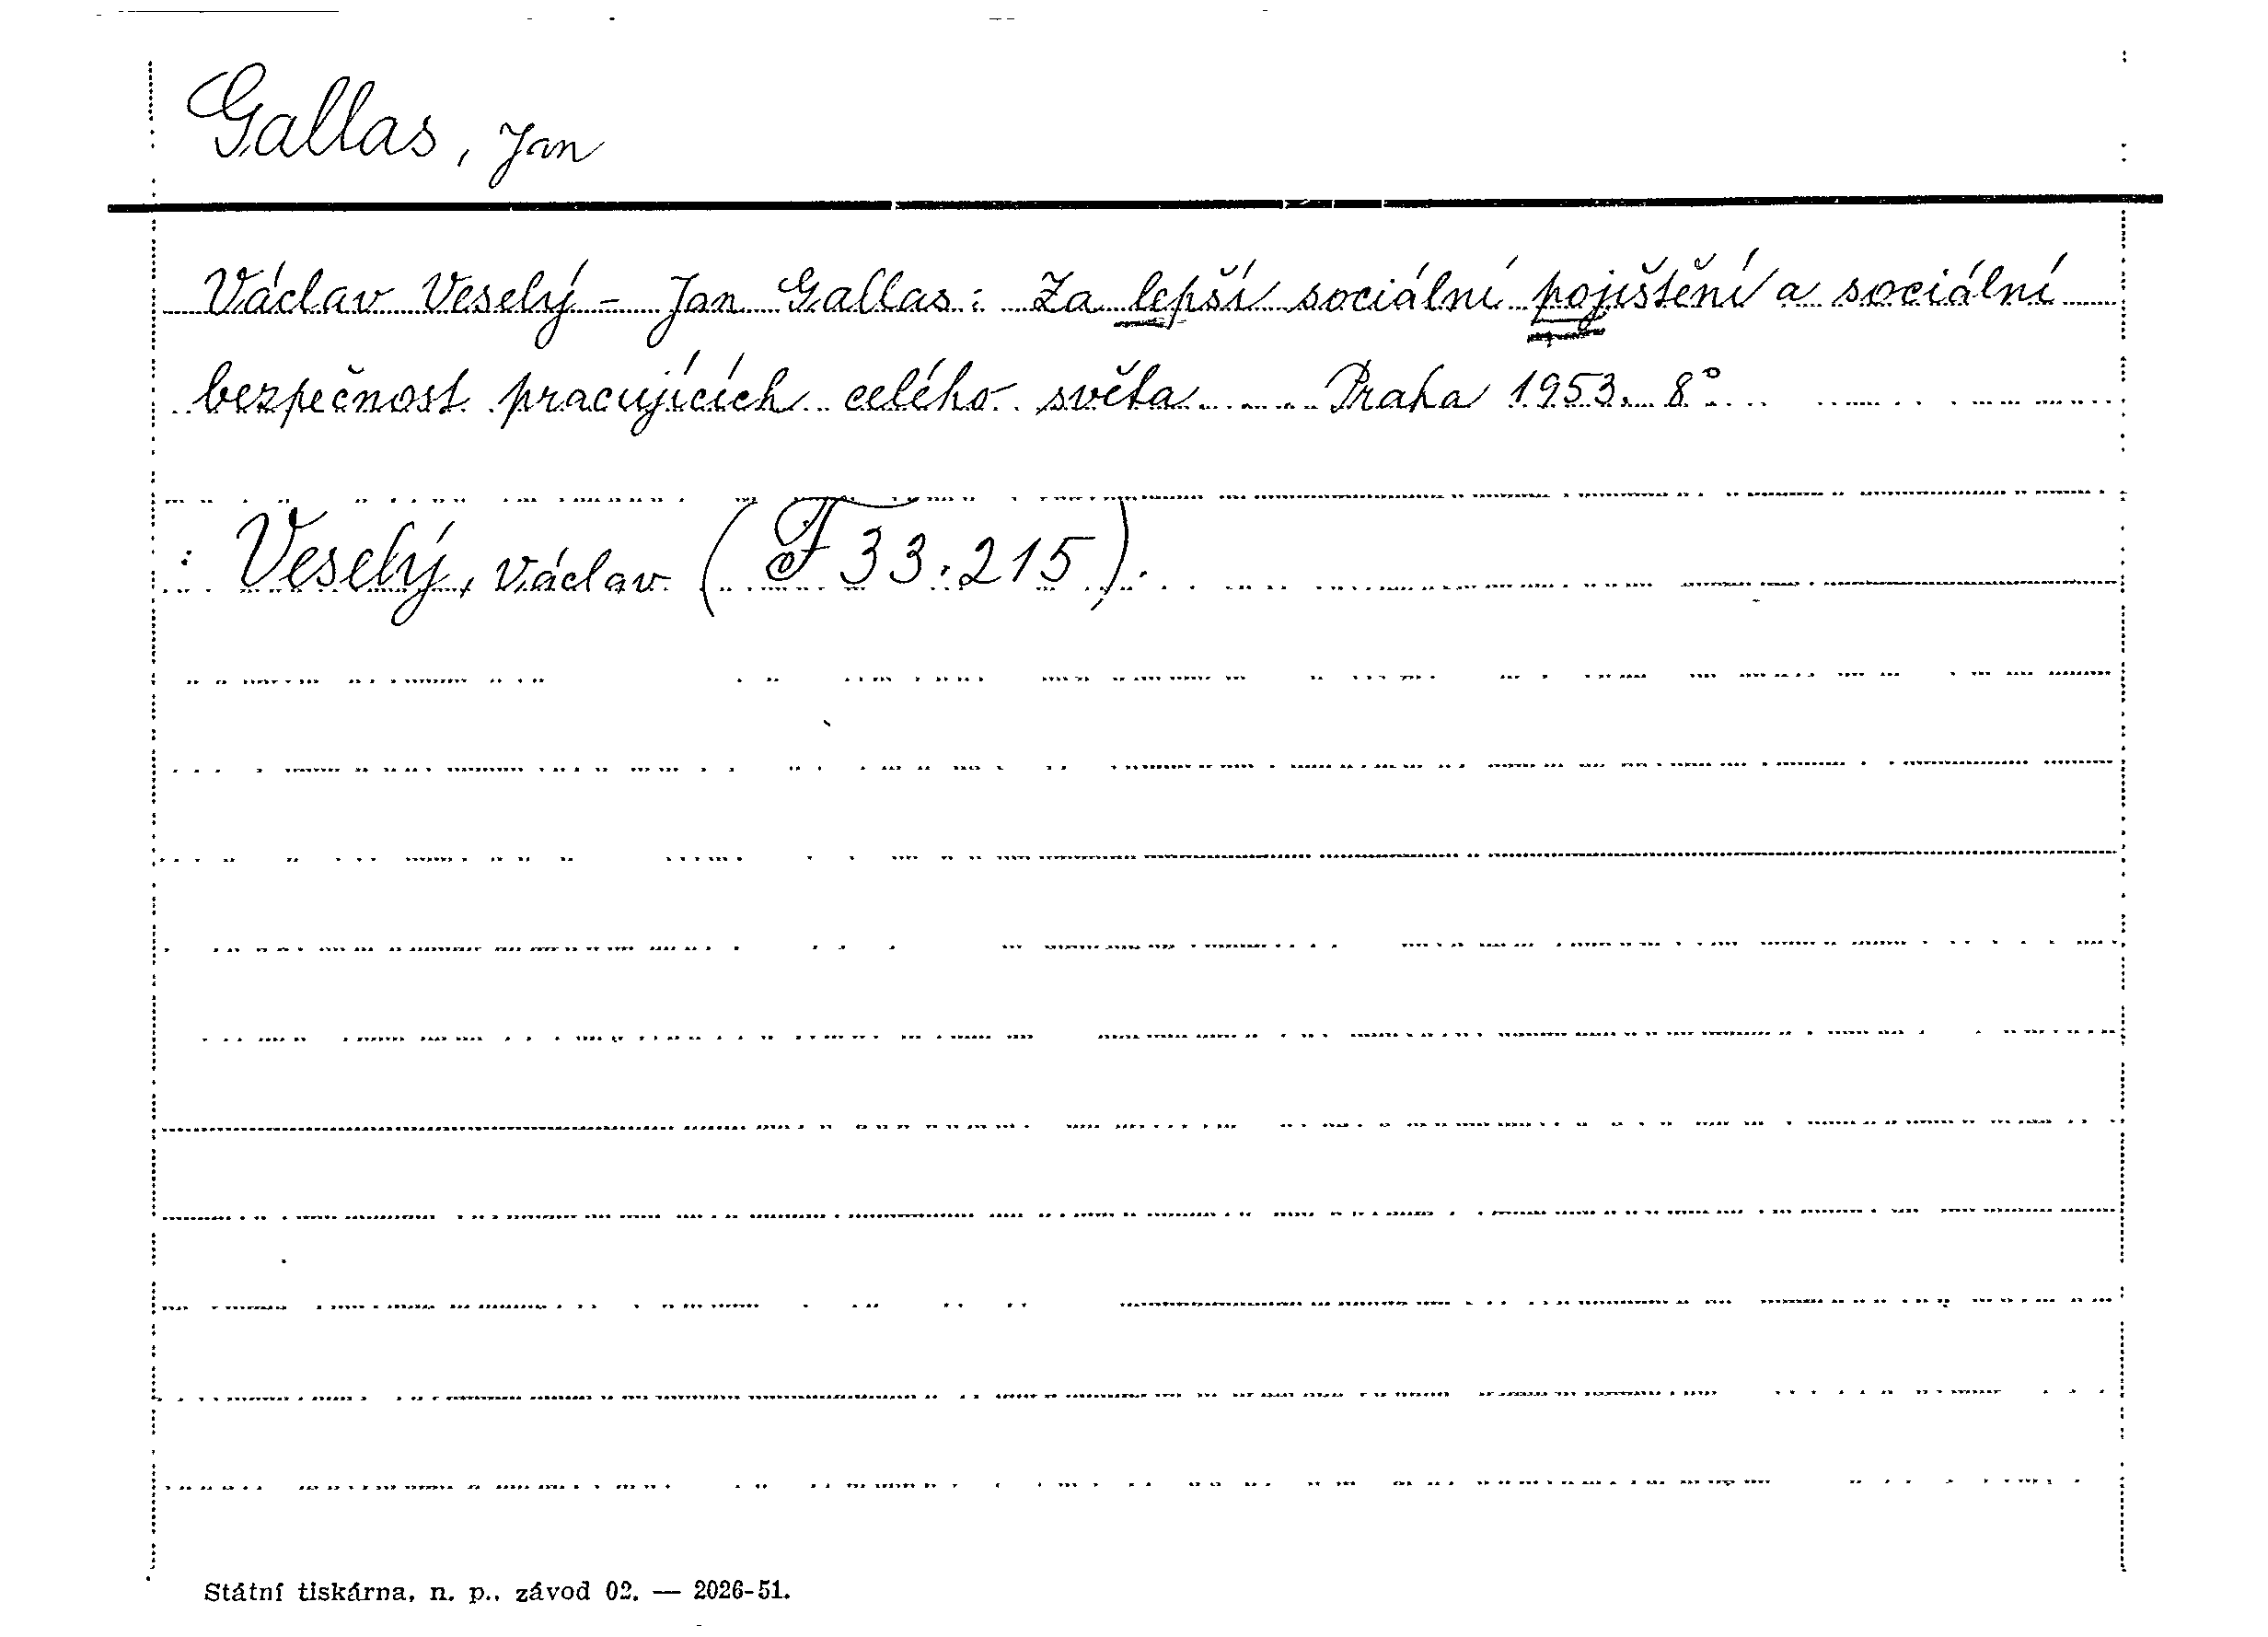 Gallas, Jan
Václav Veselý - Jan Gallas: Za lepší sociální pojištění a sociální
bezpečnost pracujících celého světa..... Praha 1953. 8°.
: Veselý, Václav (F 33.215).
Státní tiskárna, n. p., závod 02. — 2026-51.